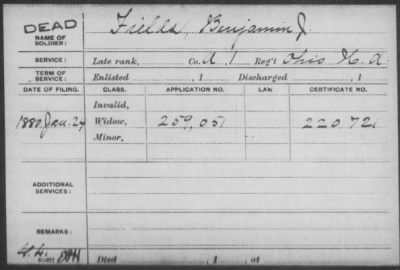 DEAD Fields, Benjamin J.
NAME OF SOLDIER:
SERVICE: Late rank, Co. A, 1 Reg't Ohio H. A.
TERM OF SERVICE: Enlisted , 1 Discharged , 1
DATE OF FILING. CLASS. APPLICATION NO. LAW. CERTIFICATE NO.
Invalid,
1880 Jan. 24 Widow, 259,051 220.721
Minor,
ADDITIONAL SERVICES:
REMARKS:
Died , 1 , at